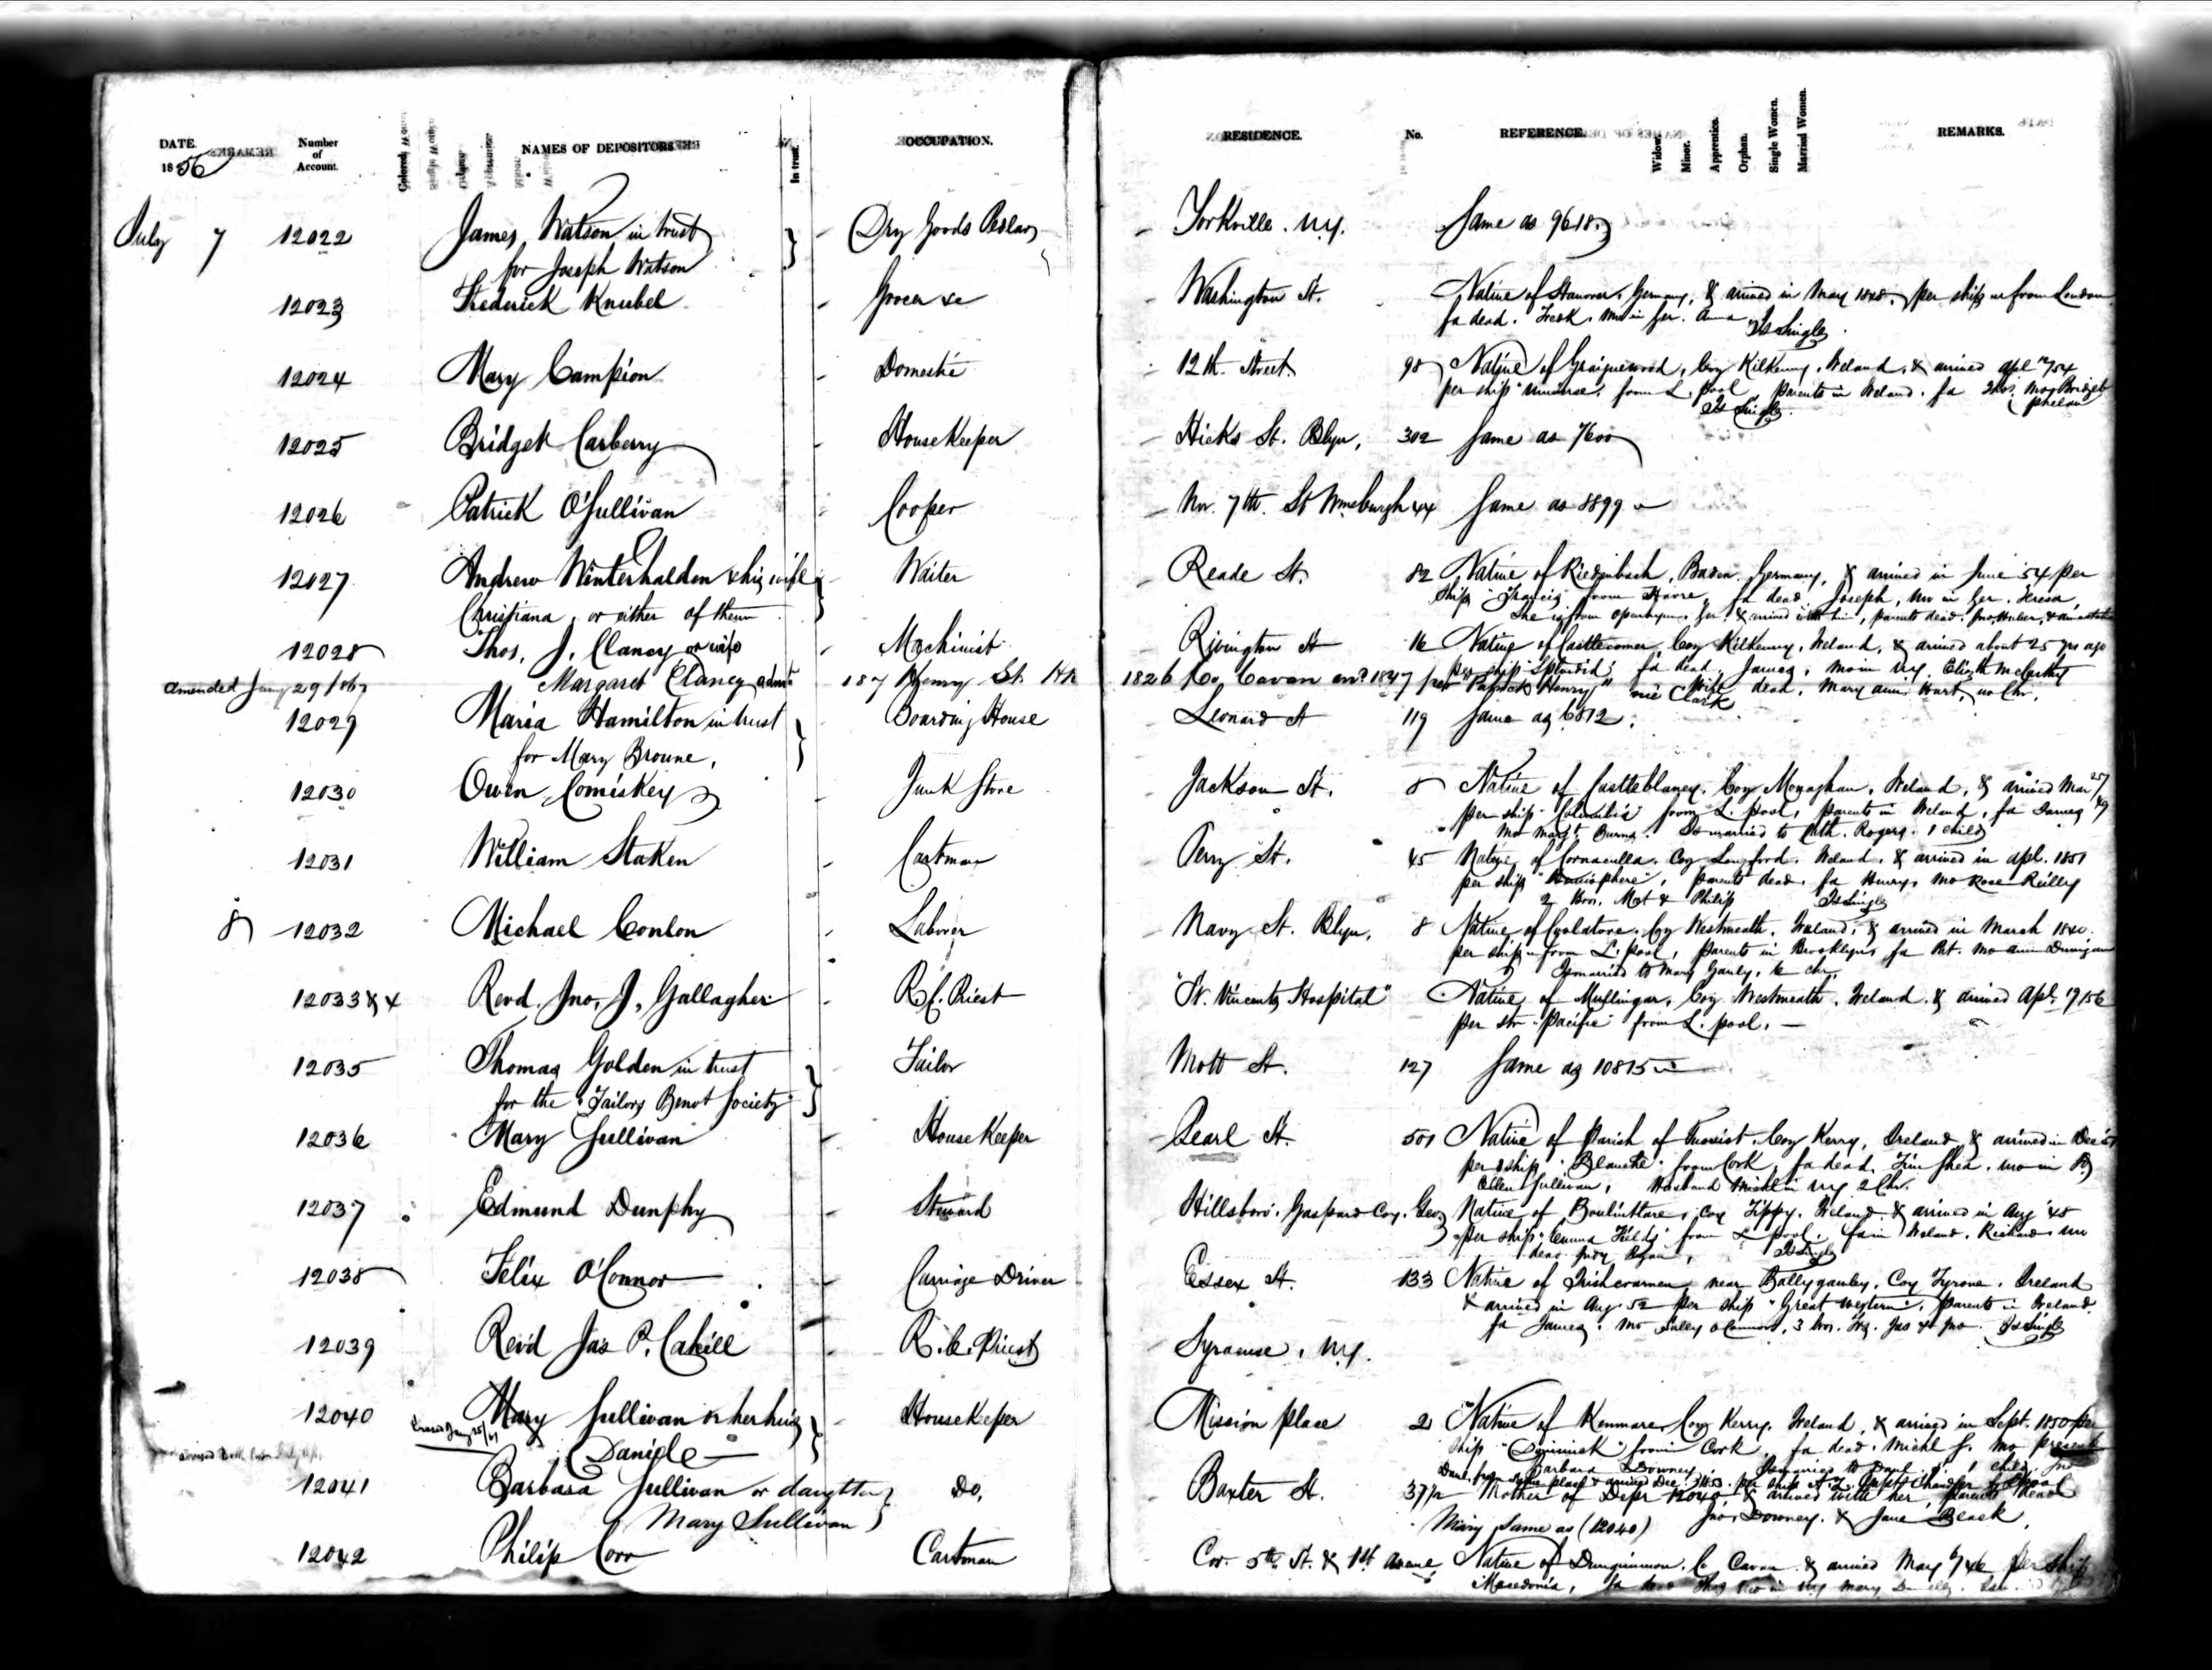 DATE. Number of Account. Colored NAMES OF DEPOSITORS. In trust. OCCUPATION. RESIDENCE. No. REFERENCE. Widow. Minor. Apprentice. Orphan. Single Women. Married Women. REMARKS.
1856
July 7 12022 James Watson in trust Dry Goods Pedlar Yorkville. N.Y. Same as 9618.
for Joseph Watson
12023 Frederick Knubel Grocer &c Washington St. Native of Hanover, Germany, & arrived in May 1848, per ship from London
fa dead. Fredk. mo in Ger. Anna Is Single
12024 Mary Campion Domestic 12th. Street. 98 Native of Graiguewood, Coy Kilkenny, Ireland, & arrived Apl 54
per ship "Universe" from L. pool parents in Ireland. fa Thos. mo Bridget
Phelan
Is Single.
12025 Bridget Carberry House Keeper Hicks St. Blyn, 302 Same as 7600
12026 Patrick O'Sullivan Cooper No. 7th. St Wmsburgh 44 Same as 8899
12027 Andrew Winterhalden & his wife Waiter Reade St. 82 Native of Riedenbach, Baden, Germany, & arrived in June 54 per
Christiana, or either of them ship from Havre, fa dead Joseph, mo in Ger. Teresa,
She is from Ger. & arrived with him, parents dead.
12028 Thos. J. Clancy or wife Machinist Rivington St 16 Native of Castlecomer, Coy Kilkenny, Ireland, & arrived about 25 yrs ago
per ship "Splendid" fa dead, James, mo in N.Y. Elizth McCarthy
amended Jany 29/67 Margaret Clancy 187 Henry St 1826 Co. Cavan 1847 per "Patrick Henry" née Clark
Wife dead, Mary Ann Hart, no Chr.
12029 Maria Hamilton in trust Boarding House Leonard St 119 Same as 6812.
for Mary Broune,
12030 Owen Comiskey Junk Store Jackson St. 8 Native of Castleblaney, Coy Monaghan, Ireland, & arrived Mar 27/49
per ship "Columbia" from L. pool, parents in Ireland, fa James
mo Margt. Burns. Is married to Cath. Rogers. 1 child
12031 William Staken Cartman Perry St. 45 Native of Cornaculla, Coy Longford, Ireland, & arrived in Apl. 1851
per ship "Hemisphere", parents dead. fa Henry, mo Rose Reilly
2 Bro. Mat & Philip Is Single
12032 Michael Conlon Laborer Navy St. Blyn, 8 Native of Coolatore, Coy Westmeath, Ireland, & arrived in March 1840.
per ship from L. pool, parents in Brooklyn, fa Pat. mo Ann Dunigan
Is married to Mary Ganly, 6 chr.
12033 Revd. Jno. J. Gallagher R.C. Priest "St. Vincents Hospital" Native of Mullingar, Coy Westmeath, Ireland, & arrived Apl. 19/56
per str "Pacific" from L. pool. —
12035 Thomas Golden in trust Tailor Mott St. 127 Same as 10815
for the "Tailors Benvt Society"
12036 Mary Sullivan House Keeper Pearl St. 501 Native of Parish of Tuosist, Coy Kerry, Ireland & arrived in Dec
per ship "Blanche" from Cork, fa dead. Tim Shea. mo in
Ellen Sullivan, Husband Michl in NY 2 Chr.
12037 Edmund Dunphy Steward Hillsboro. Coy. Geo Native of Coy Tippy, Ireland & arrived in Aug '48
per ship "Emma Fields" from L pool. fa in Ireland. Richard mo
dead Judy Ryan, Is Single
12038 Felix O'Connor Carriage Driver Essex St. 133 Native of near Ballygawley, Coy Tyrone, Ireland
& arrived in Aug. 52 per ship "Great Western", parents in Ireland
fa James. mo O'Connor, 3 bro. Jas & Jno. Is Single
12039 Revd Jas P. Cahill R.C. Priest Syracuse, N.Y.
12040 Mary Sullivan or her Housekeeper Mission Place 21 Native of Kenmare, Coy Kerry, Ireland, & arrived in Sept. 1850 per
Daniel — ship from Cork, fa dead. Michl S. mo
Barbara Downey. Is married to Danl. S. 1 child.
12041 Barbara Sullivan or daughter Do. Baxter St. 37 Mother of Depr 12040, & arrived with her, parents dead
Mary Sullivan Mary same as (12040) Jno. Downey. & Jane Black.
12042 Philip Corr Cartman Cor. 5th St. & 1st Avenue Native of Co Cavan & arrived May 46 per ship
Macedonia,